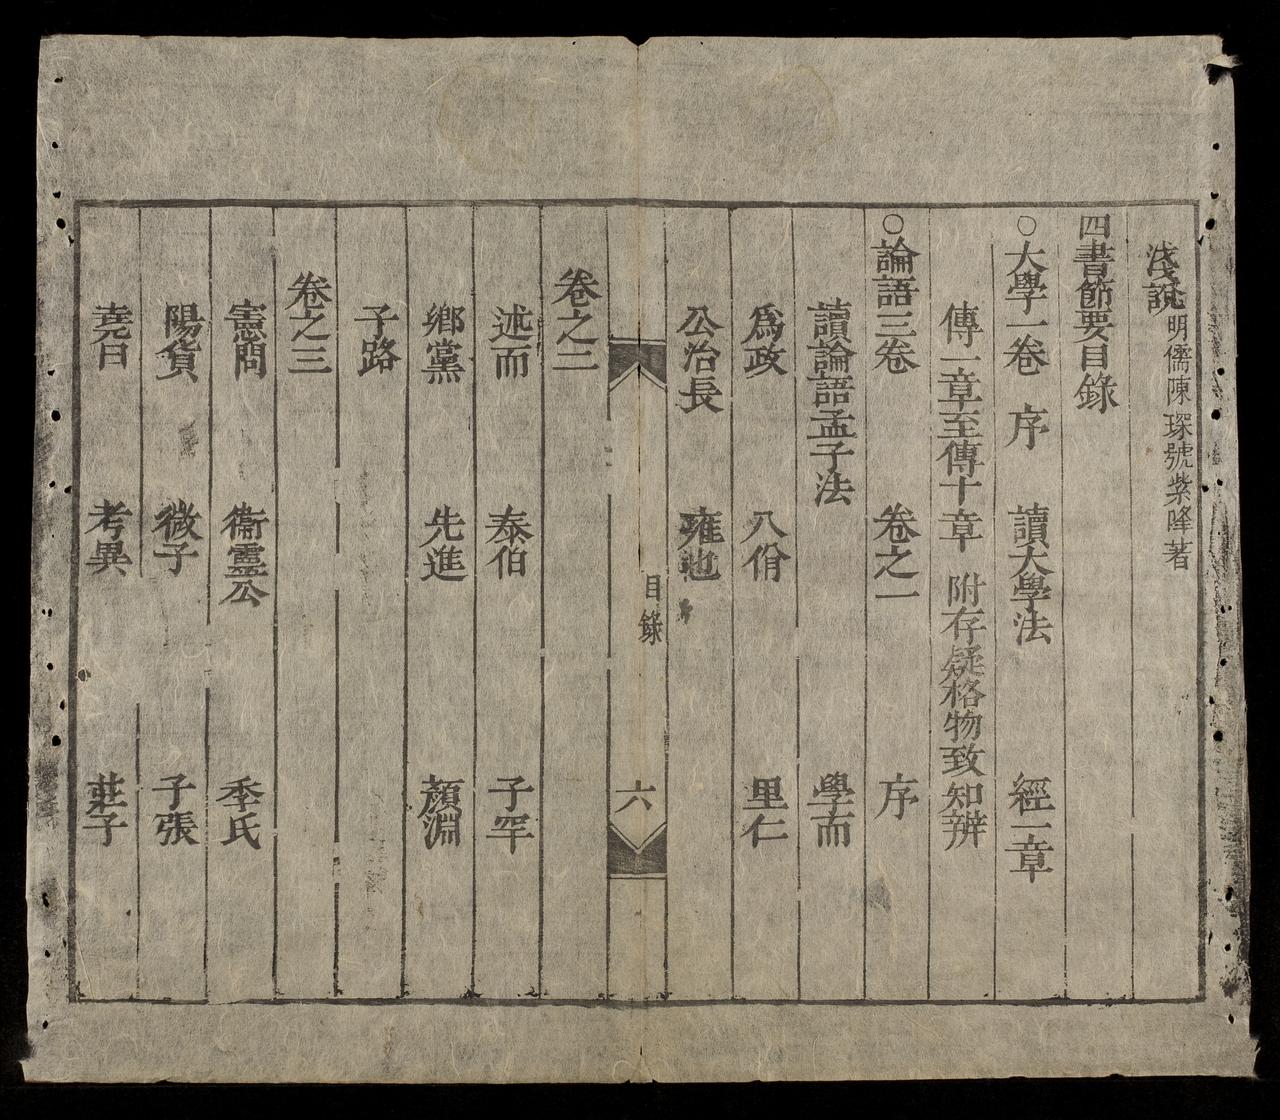 淺説明儒陳琛號紫峰著
四書節要目錄
○大學一卷 序 讀大學法 經一章
傳一章至傳十章 附存疑格物致知辨
○論語三卷 卷之一 序
讀論語孟子法 學而
爲政 八佾 里仁
公治長 雍也
目錄 六
卷之二
述而 泰伯 子罕
鄉黨 先進 顏淵
子路
卷之三
憲問 衞靈公 季氏
陽貨 微子 子張
堯曰 考異 莊子